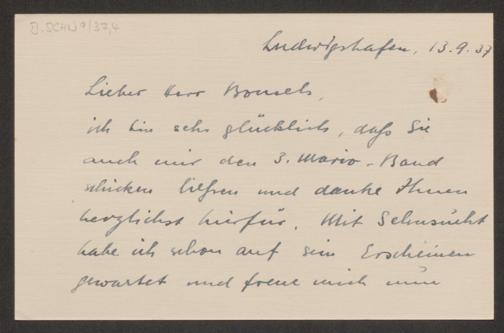 D. SCHN 9/37,4
Ludwigshafen, 13.9.37
Lieber Herr Bonsels,
ich bin sehr glücklich, daß Sie
auch mir den 3. Mario-Band
schicken ließen und danke Ihnen
herzlichst hierfür. Mit Sehnsucht
habe ich schon auf sein Erscheinen
gewartet und freue mich nun